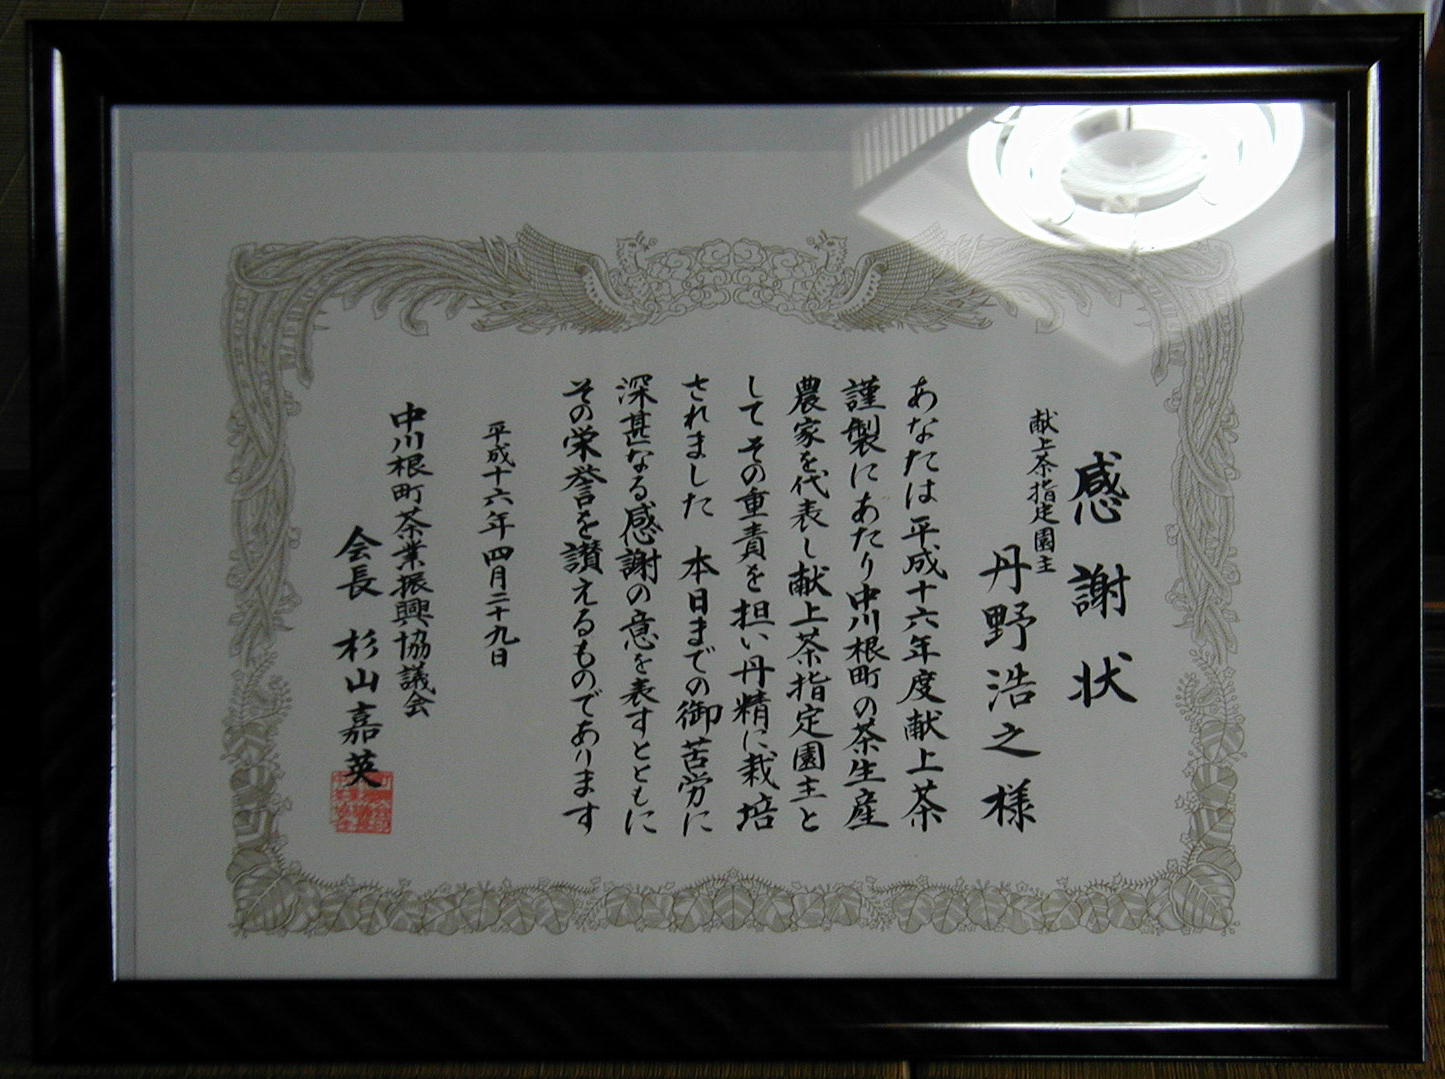 感謝状
献上茶指定園主
丹野浩之様
あなたは平成十六年度献上茶
謹製にあたり中川根町の茶生産
農家を代表し献上茶指定園主と
してその重責を担い丹精に栽培
されました 本日までの御苦労に
深甚なる感謝の意を表すとともに
その栄誉を讃えるものであります
平成十六年四月二十九日
中川根町茶業振興協議会
会長 杉山嘉英